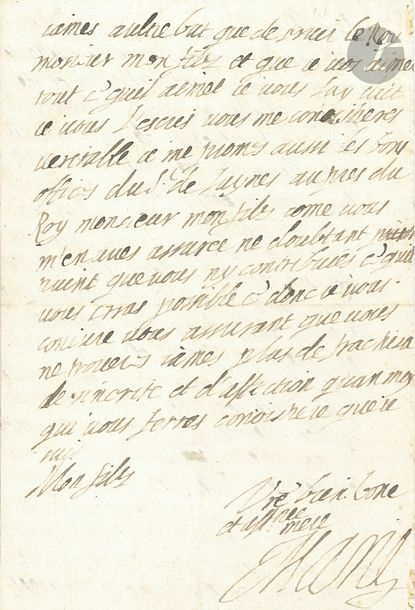 iames aultre but que de servir le Roy
monsieur mon fils et que ie vos aime
tout c quil aimet ie vous lay dit
ie vous lescris vous me conoistreres
veritable ie me promes aussi les bons
offices du Sr de Luynes aupres du
Roy monsieur mon fils come vous
m'en aves assuree ne doubtant
point que vous ny contribuies c quil
vous cera posible c donc ie vous
coniure vous assurant que vous
ne troveres iames plus de frachise
de sincerite et d'affection quan moy
qui vous ferres conoistre que ie
suis
Mon fils
Vre bien bone
et affnee mere
Marie